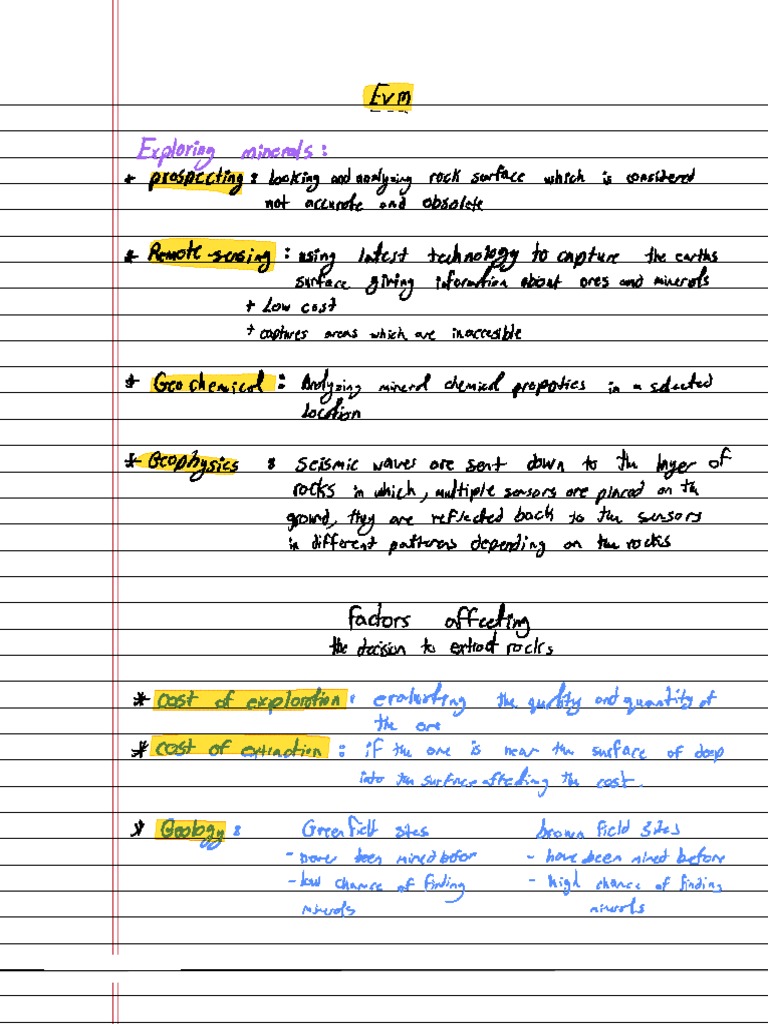 Evm
Exploring minerals:
* prospecting: looking and analyzing rock surface which is considered
not accurate and obsolete
* Remote-sensing: using latest technology to capture the earths
surface giving information about ores and minerals
+ Low cost
+ captures areas which are inaccesible
* Geochemical: Analyzing mineral chemical properties in a selected
location
* Geophysics: seismic waves are sent down to the layer of
rocks in which, multiple sensors are placed on the
ground, they are reflected back to the sensors
in different patterns depending on the rocks
factors affecting
the decision to extract rocks
* cost of exploration: evaluating the quality and quantity of
the ore
* cost of extraction: if the ore is near the surface of deep
into the surface affecting the cost.
* Geology: Greenfield sites brown field sites
- never been mined before - have been mined before
- low chance of finding - high chance of finding
minerals minerals